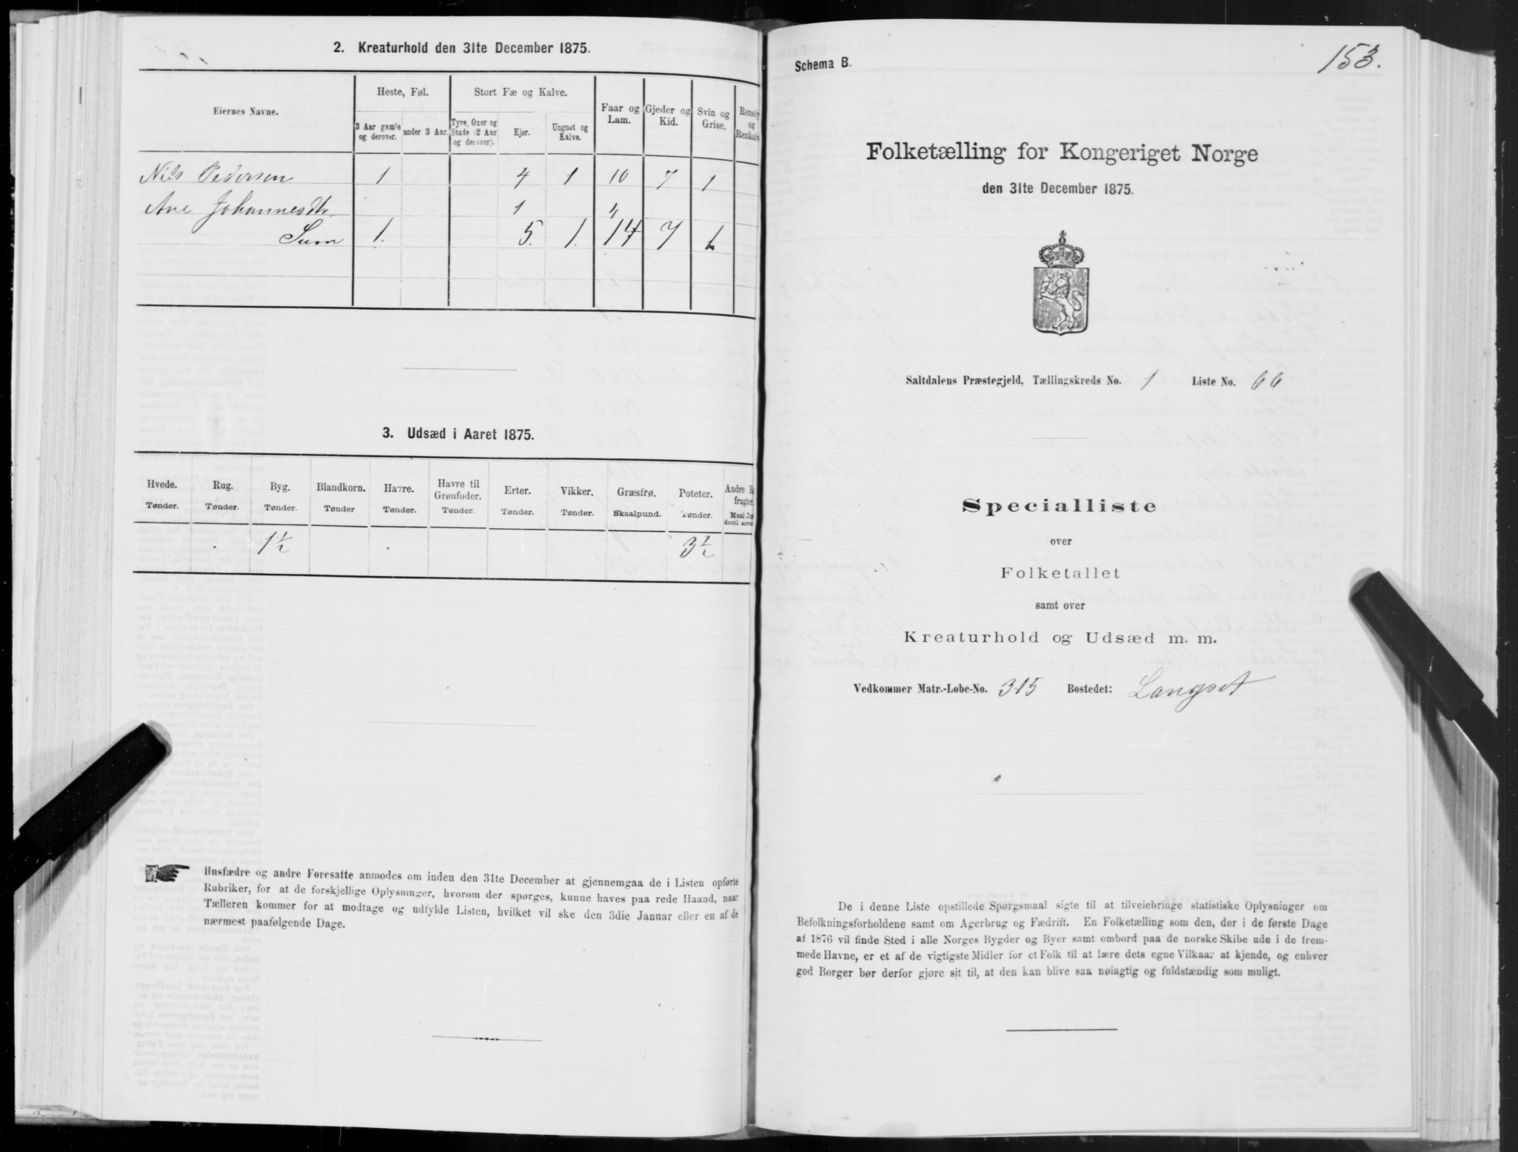 2. Kreaturhold den 31te December 1875.
Eiernes Navne.
Heste, Føl.
Stort Fæ og Kalve.
Faar og Lam.
Gjeder og Kid.
Svin og Grise.
3 Aar gamle og derover.
under 3 Aar.
Tyre, Oxer og Stude (2 Aar og derover).
Kjør.
Ungnøt og Kalve.
Nils Pedersen 1 4 1 10 7 1
Ane Johannesdtr 1 4
Sum 1. 5. 1. 14 7
3. Udsæd i Aaret 1875.
Hvede. Rug. Byg. Blandkorn. Havre. Havre til Grønfoder. Erter. Vikker. Græsfrø. Poteter.
Tønder. Tønder. Tønder. Tønder Tønder. Tønder. Tønder. Tønder. Skaalpund. Tønder.
1½ 3½
Husfædre og andre Foresatte anmodes om inden den 31te December at gjennemgaa de i Listen opførte
Rubriker, for at de forskjellige Oplysninger, hvorom der spørges, kunne haves paa rede Haand, naar
Tælleren kommer for at modtage og udfylde Listen, hvilket vil ske den 3die Januar eller en af de
nærmest paafølgende Dage.
Schema B.
153.
Folketælling for Kongeriget Norge
den 31te December 1875.
Saltdalens Præstegjeld, Tællingskreds No. 1 Liste No. 66
Specialliste
over
Folketallet
samt over
Kreaturhold og Udsæd m. m.
Vedkommer Matr.-Løbe-No. 315 Bostedet: Langset
De i denne Liste opstillede Spørgsmaal sigte til at tilveiebringe statistiske Oplysninger om
Befolkningsforholdene samt om Agerbrug og Fædrift. En Folketælling som den, der i de første Dage
af 1876 vil finde Sted i alle Norges Bygder og Byer samt ombord paa de norske Skibe ude i de frem-
mede Havne, er et af de vigtigste Midler for et Folk til at lære dets egne Vilkaar at kjende, og enhver
god Borger bør derfor gjøre sit til, at den kan blive saa nøiagtig og fuldstændig som muligt.